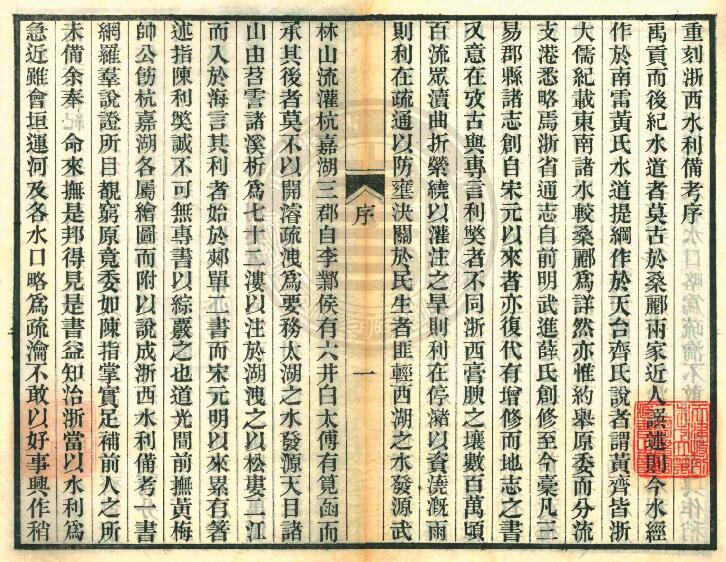 重刻浙西水利備考序
禹貢而後紀水道者莫古於桑酈兩家近人譔述則今水經
作於南雷黃氏水道提綱作於天台齊氏說者謂黃齊皆浙
大儒紀載東南諸水較桑酈為詳然亦惟約舉原委而分流
支港悉略焉浙省通志自前明武進薛氏創修至今毫凡三
易郡縣諸志創自宋元以來者亦復代有增修而地志之書
又意在攷古與專言利獘者不同浙西膏腴之壤數百萬頃
百流眾瀆曲折縈繞以灌注之旱則利在停瀦以資澆溉雨
則利在疏通以防壅決關於民生者匪輕西湖之水發源武
序
一
林山流灌杭嘉湖三郡自李鄴侯有六井白太傅有筧函而
承其後者莫不以開濬疏洩為要務太湖之水發源天目諸
山由苕霅諸溪析為七十二漊以注於湖洩之以松婁江
而入於海言其利者始於郟單二書而宋元明以來累有著
述指陳利獘誠不可無專書以綜覈之也道光間前撫黃梅
帥公飭杭嘉湖各屬繪圖而附以說成浙西水利備考一書
網羅羣說證所目覩窮原竟委如陳指掌實足補前人之所
未備余奉命來撫是邦得見是書益知治浙當以水利為
急近雖會垣運河及各水口略為疏瀹不敢以好事興作稍